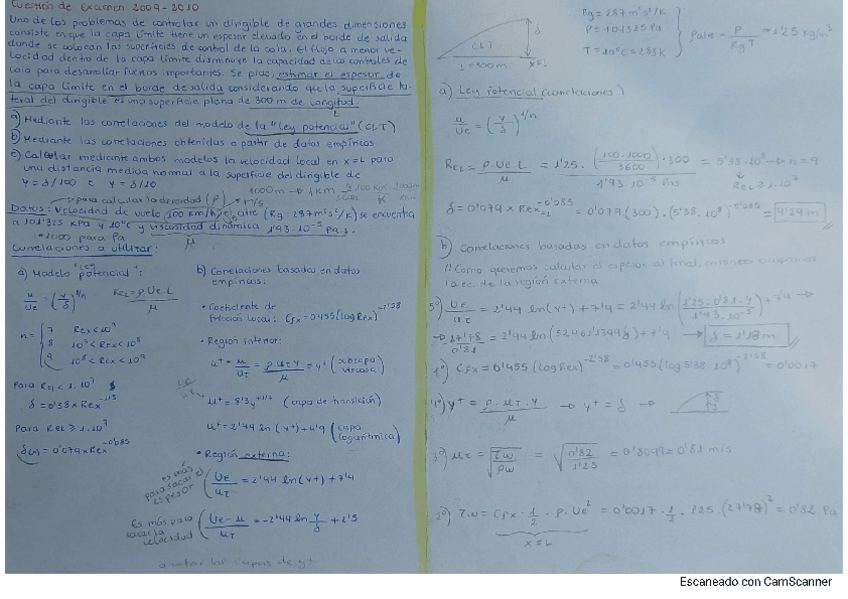 Cuestión de Examen 2009-2010
Uno de los problemas de controlar un dirigible de grandes dimensiones
consiste en que la capa límite tiene un espesor elevado en el borde de salida
donde se colocan las superficies de control de la cola. El flujo a menor ve-
locidad dentro de la capa límite disminuye la capacidad de los controles de
cola para desarrollar fuerzas importantes. Se pide, estimar el espesor de
la capa límite en el borde de salida considerando que la superficie la-
teral del dirigible es una superficie plana de 300 m de longitud.
L
a) Mediante las correlaciones del modelo de la "Ley potencial" (CLT)
b) Mediante las correlaciones obtenidas a partir de datos empíricos
c) Calcular mediante ambos modelos la velocidad local en x=L para
una distancia medida normal a la superficie del dirigible de
y=δ/100 e y=δ/10
1000m → 1km
para calcular la densidad (ρ)
Datos: Velocidad de vuelo 100 km/h, el aire (Rg=287m²s²/K) se encuentra
a 101'325 KPa y 10°C y viscosidad dinámica 1'93·10⁻⁵ Pa·s.
*1000 para Pa
μ
Correlaciones a utilizar:
a) Modelo "Ley potencial":
u/Ue = (y/δ)^1/n
ReL = ρ·Ue·L/μ
n = { 7 Rex<10⁷
8 10⁷<Rex<10⁸
9 10⁸<Rex<10⁹
Para ReL<1·10⁷
δ=0'38×Rex^-1/5
Para ReL≥1·10⁷
δ(x)=0'079×Rex^-0'085
b) Correlaciones basadas en datos
empíricos:
• Coeficiente de
fricción local: Cfx=0'455(logRex)^-2'58
• Región interior:
u⁺=u/uτ=ρ·uτ·y/μ=y⁺ (subcapa viscosa)
u⁺=8'3y⁺^1/7 (capa de transición)
u⁺=2'44 ln(y⁺)+4'9 (capa logarítmica)
• Región externa:
es más para sacar el espesor
Ue/uτ = 2'44 ln(y⁺)+7'4
Es más para sacar la velocidad
Ue-u/uτ = -2'44 ln y/δ + 2'5
Rg=287m²s²/K
P=101325 Pa
T=10°C=283K
ρaire = P/RgT = 1'25 kg/m³
CLT
δ
L=300m x=L
a) Ley Potencial (correlaciones)
u/Ue = (y/δ)^1/n
ReL = ρ·Ue·L/μ = 1'25·(100·1000/3600)·300/1'93·10⁻⁵ Pa·s = 5'38·10⁸ → n=9
ReL≥1·10⁷
δ=0'079×RexL^-0'085=0'079·(300)·(5'38·10⁸)^-0'085=4'29 m
b) Correlaciones basadas en datos empíricos
"Como queremos calcular el espesor al final, entonces ocupamos
la ec. de la región externa
5º) Ue/uτ=2'44 ln(y⁺)+7'4=2'44 ln(1'25·0'81·y/1'93·10⁻⁵)+7'4 →
→ 27'78/0'81=2'44 ln(52461'1399δ)+7'4 → δ=1'18m
1º) Cfx=0'455(logRex)^-2'58=0'455(log5'38·10⁸)^-2'58=0'0017
4º) y⁺=ρ·uτ·y/μ → y⁺=δ →
3º) uτ=√τw/ρw = √0'82/1'25 = 0'8099≈0'81 m/s
2º) τw=Cfx·1/2·ρ·Ue²=0'0017·1/2·1'25·(27'78)²=0'82 Pa
x=L
Escaneado con CamScanner